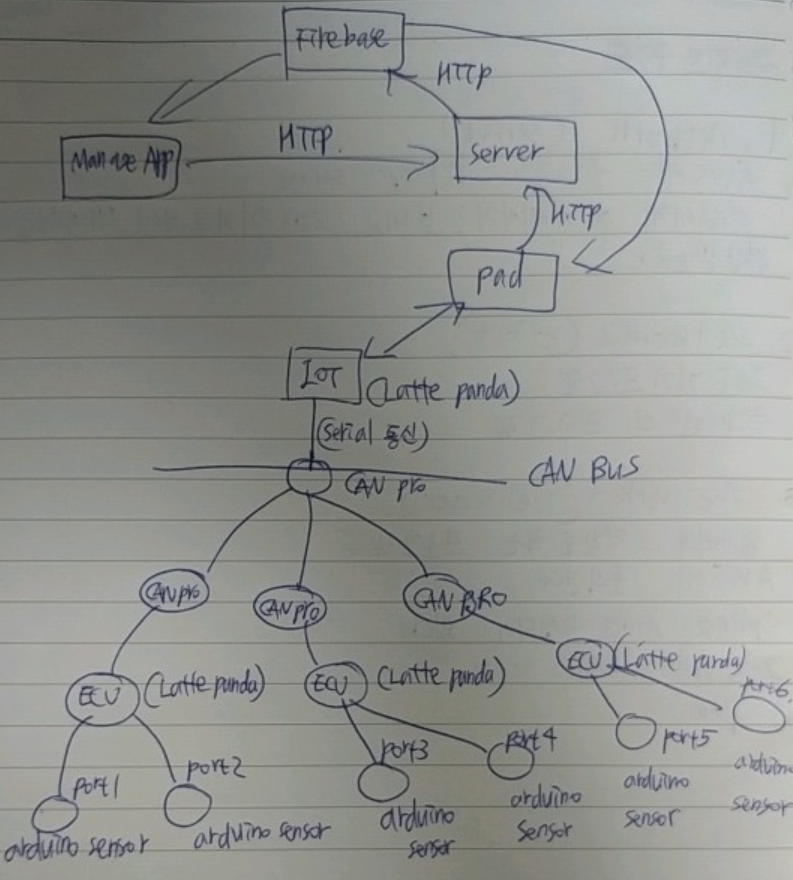 Firebase
HTTP
Manage App
HTTP.
server
HTTP
pad
IOT
(Latte panda)
(serial 통신)
CAN pro
CAN BUS
CAN pro
CAN pro
CAN PRO
ECU
(Latte panda)
ECU
(Latte panda)
ECU
(Latte panda)
port1
port2
port3
port4
port5
port6
arduino sensor
arduino sensor
arduino
sensor
arduino
sensor
arduino
sensor
arduino
sensor